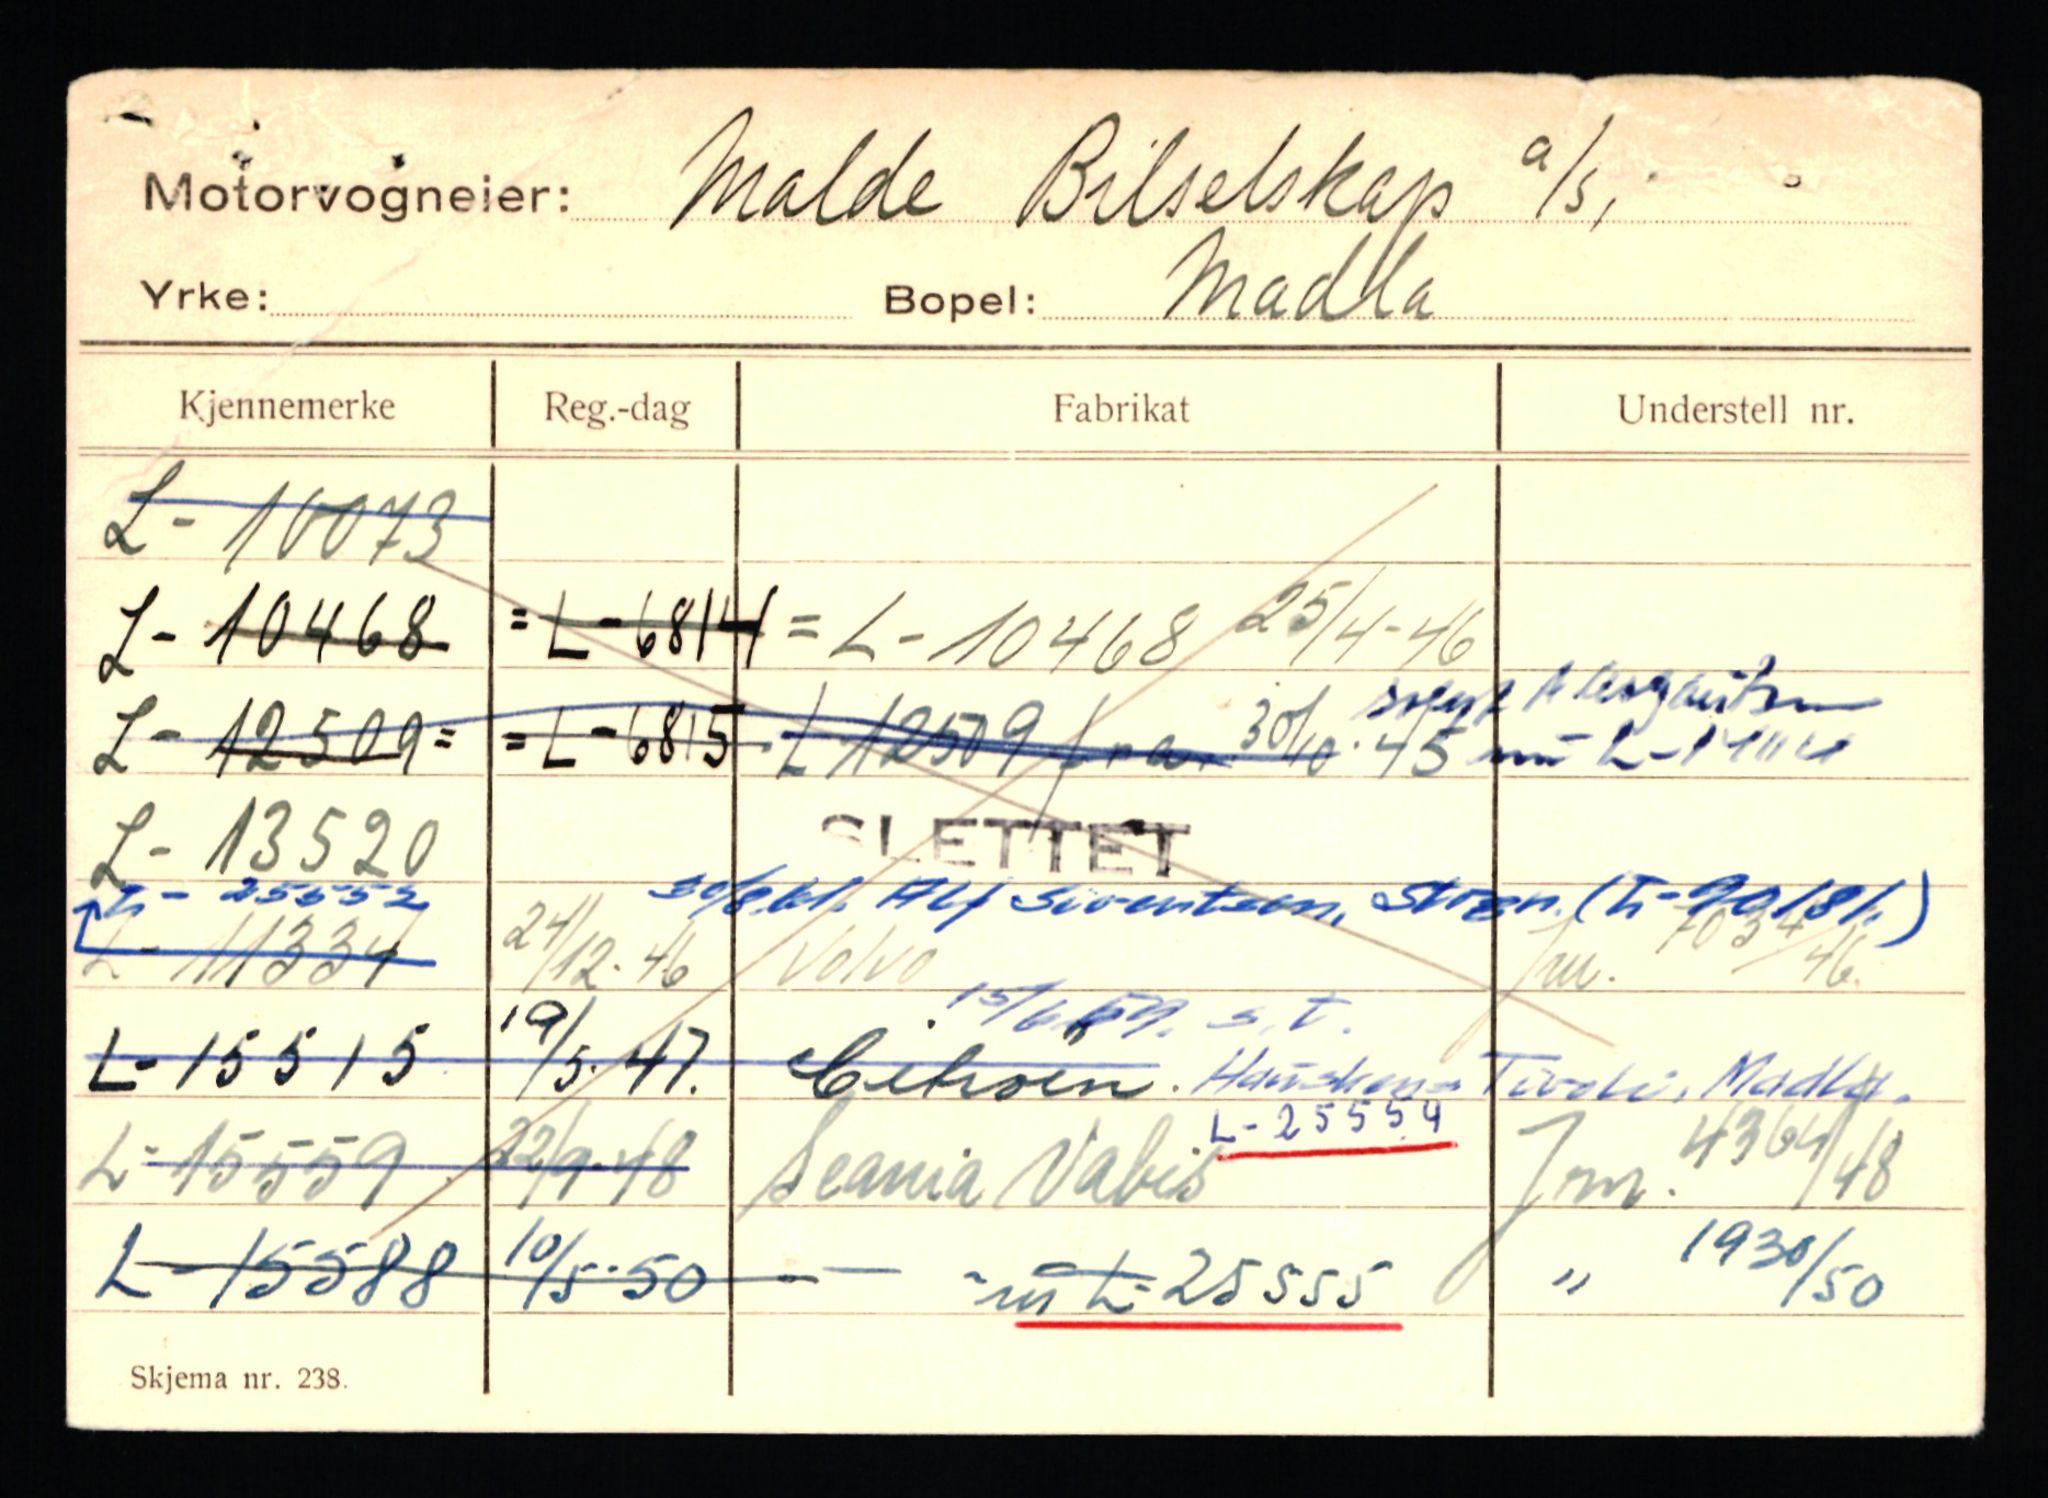 Motorvogneier: Malde Bilselskap a/s,
Yrke: Bopel: Madla
Kjennemerke Reg.-dag Fabrikat Understell nr.
L- 10073
L- 10468 = L-6814 = L-10468 25/4-46
L- 12509 = = L-6815 L 12509 fra 30/10-45 nu L-
L- 13520 SLETTET
L- 25552 Alf Sivertsen, (L-90181.)
L- 11334 24/12-46 Volvo Jm. 7034/46.
15/6 59. s.t.
L- 15515 19/5-47. Citroën. Tivoli, Madla.
L-25554
L-15559 22/9-48 Scania Vabis Jm. 4364/48
L-15588 10/5-50 — - nu L-25555 " 1930/50
Skjema nr. 238.